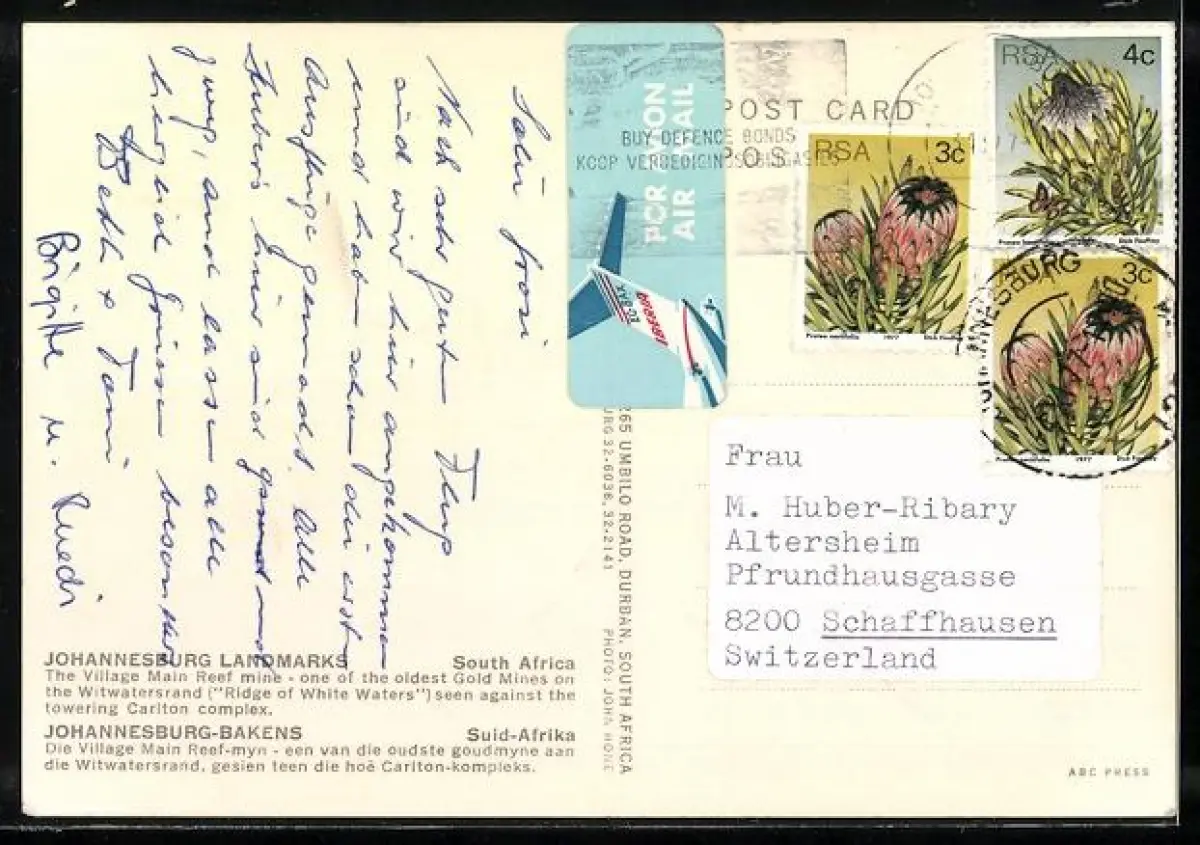 Nach sehr Flug
sind wir hier angekommen
und hab schon
Ausflüge gemacht. Alle
Huber's hier sind gsund und
zwäg, und lassen alle
herzlich Grüssen besonders
Toni
Brigitte u. Ruedi
JOHANNESBURG LANDMARKS South Africa
The Village Main Reef mine - one of the oldest Gold Mines on
the Witwatersrand ("Ridge of White Waters") seen against the
towering Carlton complex.
JOHANNESBURG-BAKENS Suid-Afrika
Die Village Main Reef-myn - een van die oudste goudmyne aan
die Witwatersrand, gesien teen die hoë Carlton-kompleks.
265 UMBILO ROAD, DURBAN, SOUTH AFRICA
URG 32-6036, 32-2141 PHOTO: JOHN HONE
PAR AVION
AIR MAIL
POST CARD
POS
BUY DEFENCE BONDS
KOOP VERDEDIGINGSOBLIGASIES
RSA 3c
1977 Dick Findlay
RSA 4c
Dick Findlay
3c
1977 Dick Findlay
JOHANNESBURG
Frau
M. Huber-Ribary
Altersheim
Pfrundhausgasse
8200 Schaffhausen
Switzerland
ABC PRESS